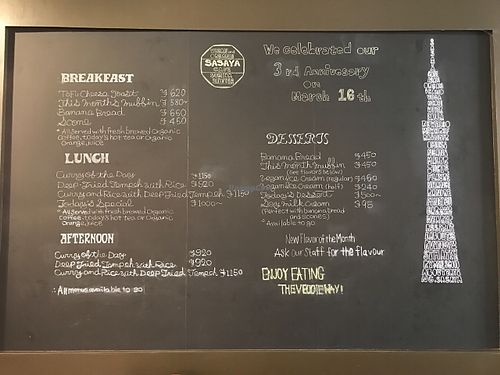 SASAYA
CAFE
BREAKFAST
Tofu Cheese Toast ¥ 620
This Month's Muffin ¥ 580~
Banana Bread ¥ 660
Scone ¥ 450
* All Served with fresh brewed Organic
coffee, today's hot tea or Organic
Orange juice
LUNCH
Curry of the Day ¥1150
Deep-Fried Tempeh with Rice ¥ 920
Curry and Rice with Deep Fried Tempeh ¥1150
Today's Special ¥ 1000~
* All Served with fresh brewed Organic
coffee, today's hot tea or Organic
Orange juice
AFTERNOON
Curry of the Day ¥920
Deep Fried Tempeh with Rice ¥920
Curry and Rice with Deep Fried Tempeh ¥1150
* All menus available to go
We celebrated our
3rd Anniversary
on
March 16th
DESSERTS
Banana Bread ¥450
This month Muffin ¥450
(see flavors below)
Vegan Ice Cream (regular) ¥450
Vegan Ice Cream (half) ¥240
Today's Dessert ¥500~
Soy milk Cream ¥95
(Perfect with banana bread
and scones)
* Available to go
New Flavor of the Month
Ask our Staff for the flavour
ENJOY EATING
THE VEGGIE WAY!